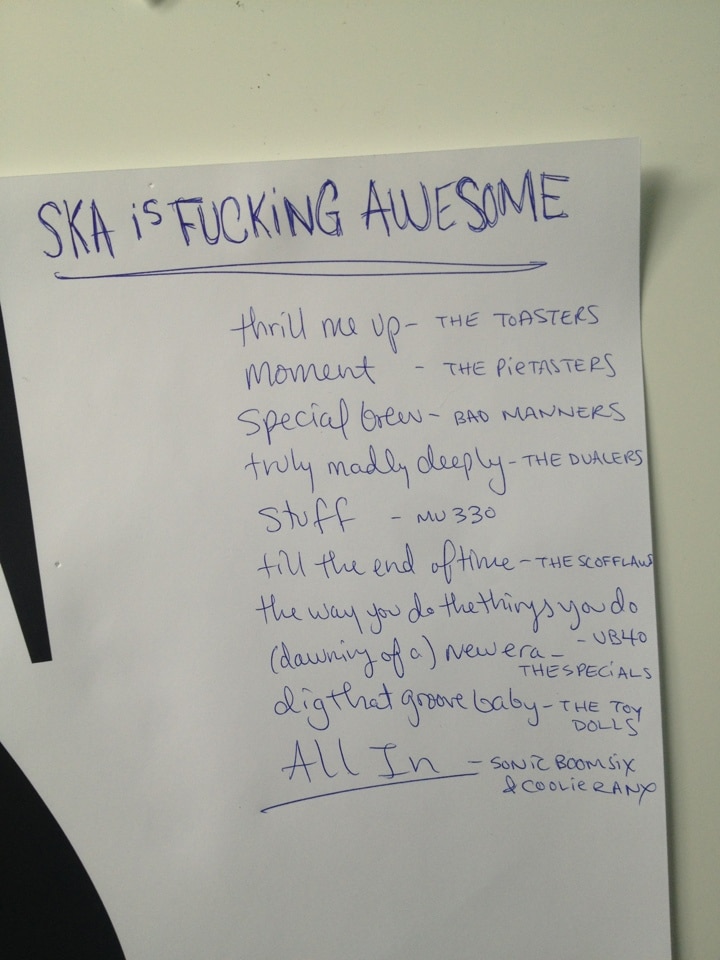 SKA iS FUCKiNG AWESOME
thrill me up - THE TOASTERS
Moment - THE PiETASTERS
Special brew - BAD MANNERS
truly madly deeply - THE DUALERS
Stuff - MU330
till the end of time - THE SCOFFLAWS
the way you do the things you do
- UB40
(dawning of a) New era -
THE SPECiALS
dig that groove baby - THE TOY
DOLLS
All In - SONiC BOOM SiX
& COOLiE RANX